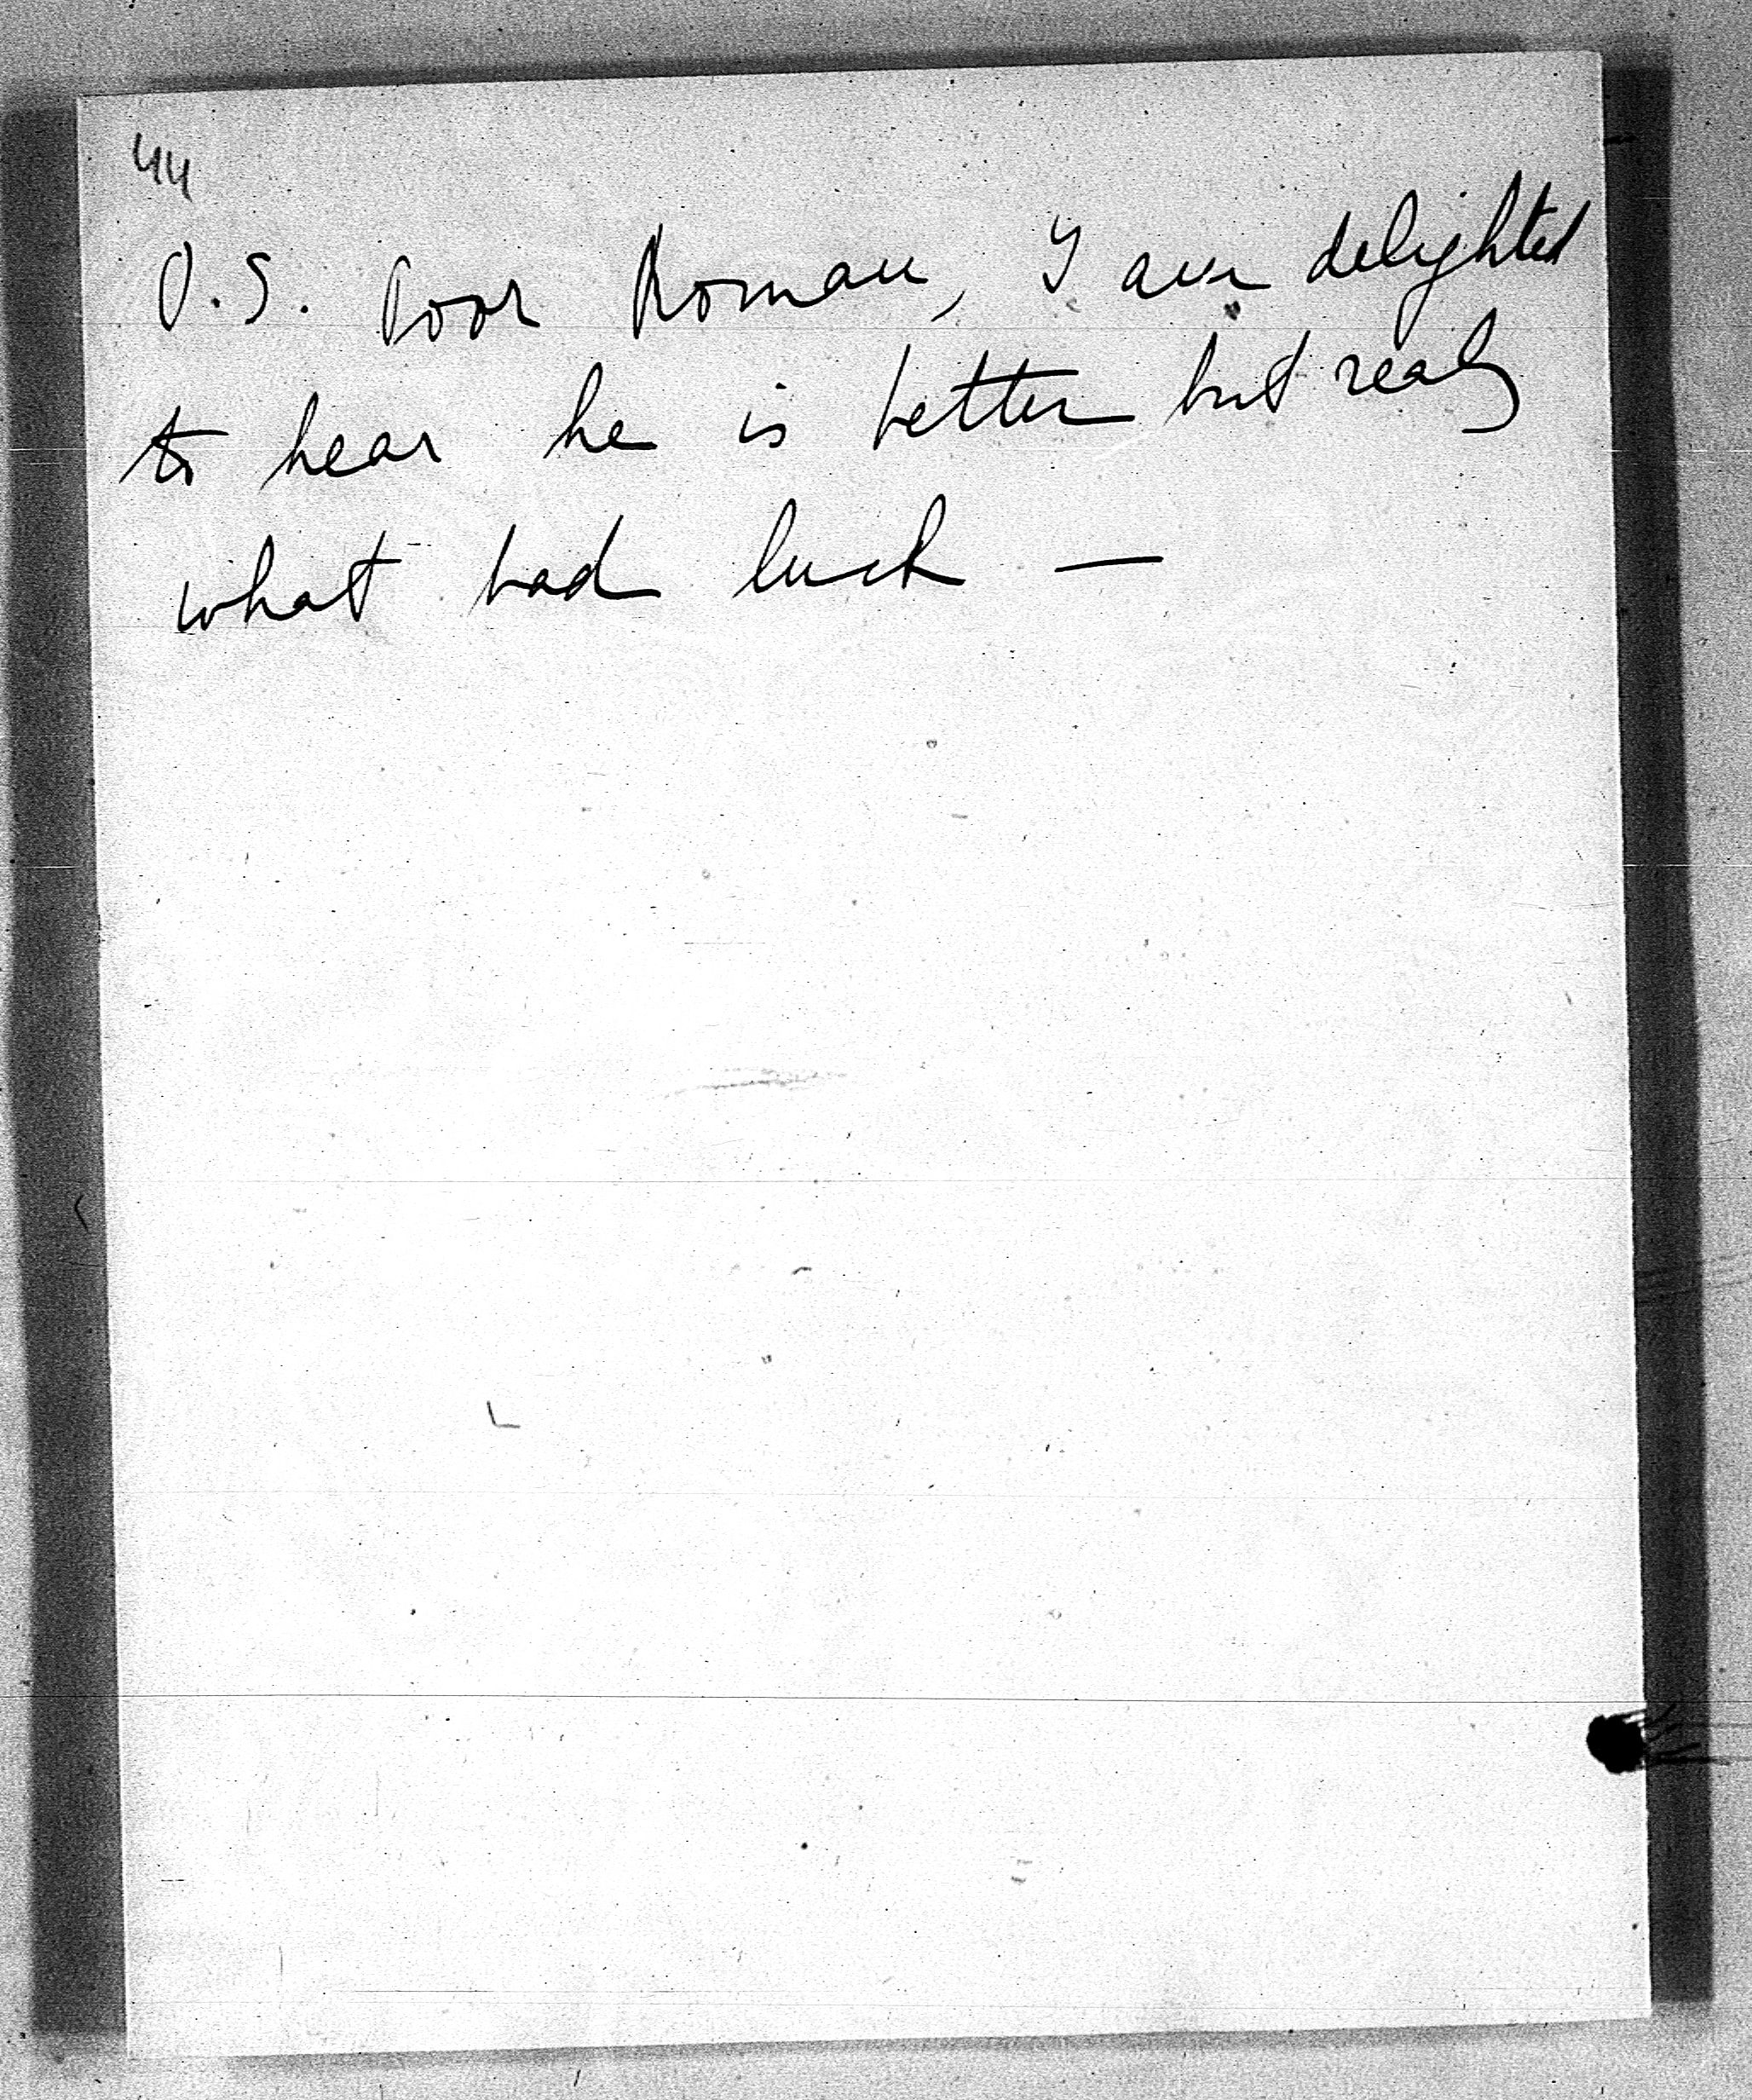 44
P.S. Poor Roman, I am delighted
to hear he is better but really
what bad luck —